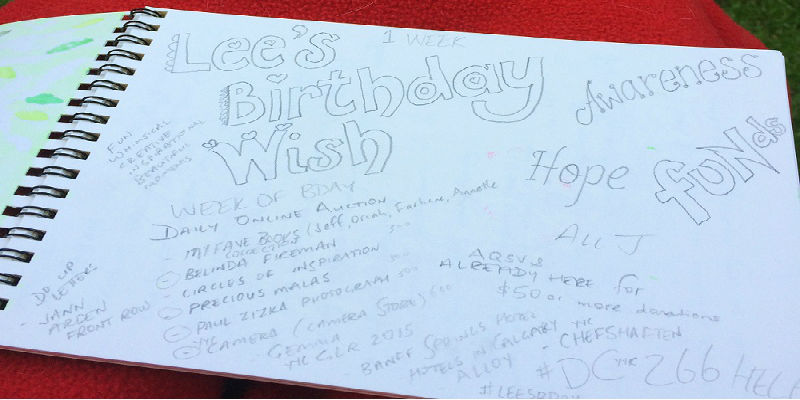 Lee's
Birthday
Wish
1 WEEK
Awareness
Hope
FUNds
FUN
WHIMSICAL
CREATIVE
INSPIRATIONAL
BEAUTIFUL
WEEK OF BDAY
DAILY ONLINE AUCTION
- MY FAVE BOOKS (Jeff, Oriah, Annette
COLLECTION
BELINDA FIREMAN
- CIRCLES OF INSPIRATION
PRECIOUS MALAS
PAUL ZIZKA PHOTOGRAPH 500
CAMERA (CAMERA STORE) 500
GEMMA
YYCGLR 2015
BANFF SPRINGS HOTEL
HOTELS IN CALGARY
ALLOY
- CHEFS
ALL J
ALREADY HERE for
$50 or more donations
DO UP
LETTERS
- JANN
ARDEN
FRONT ROW
#DC YYC 266 HELP
#LEESBDAY